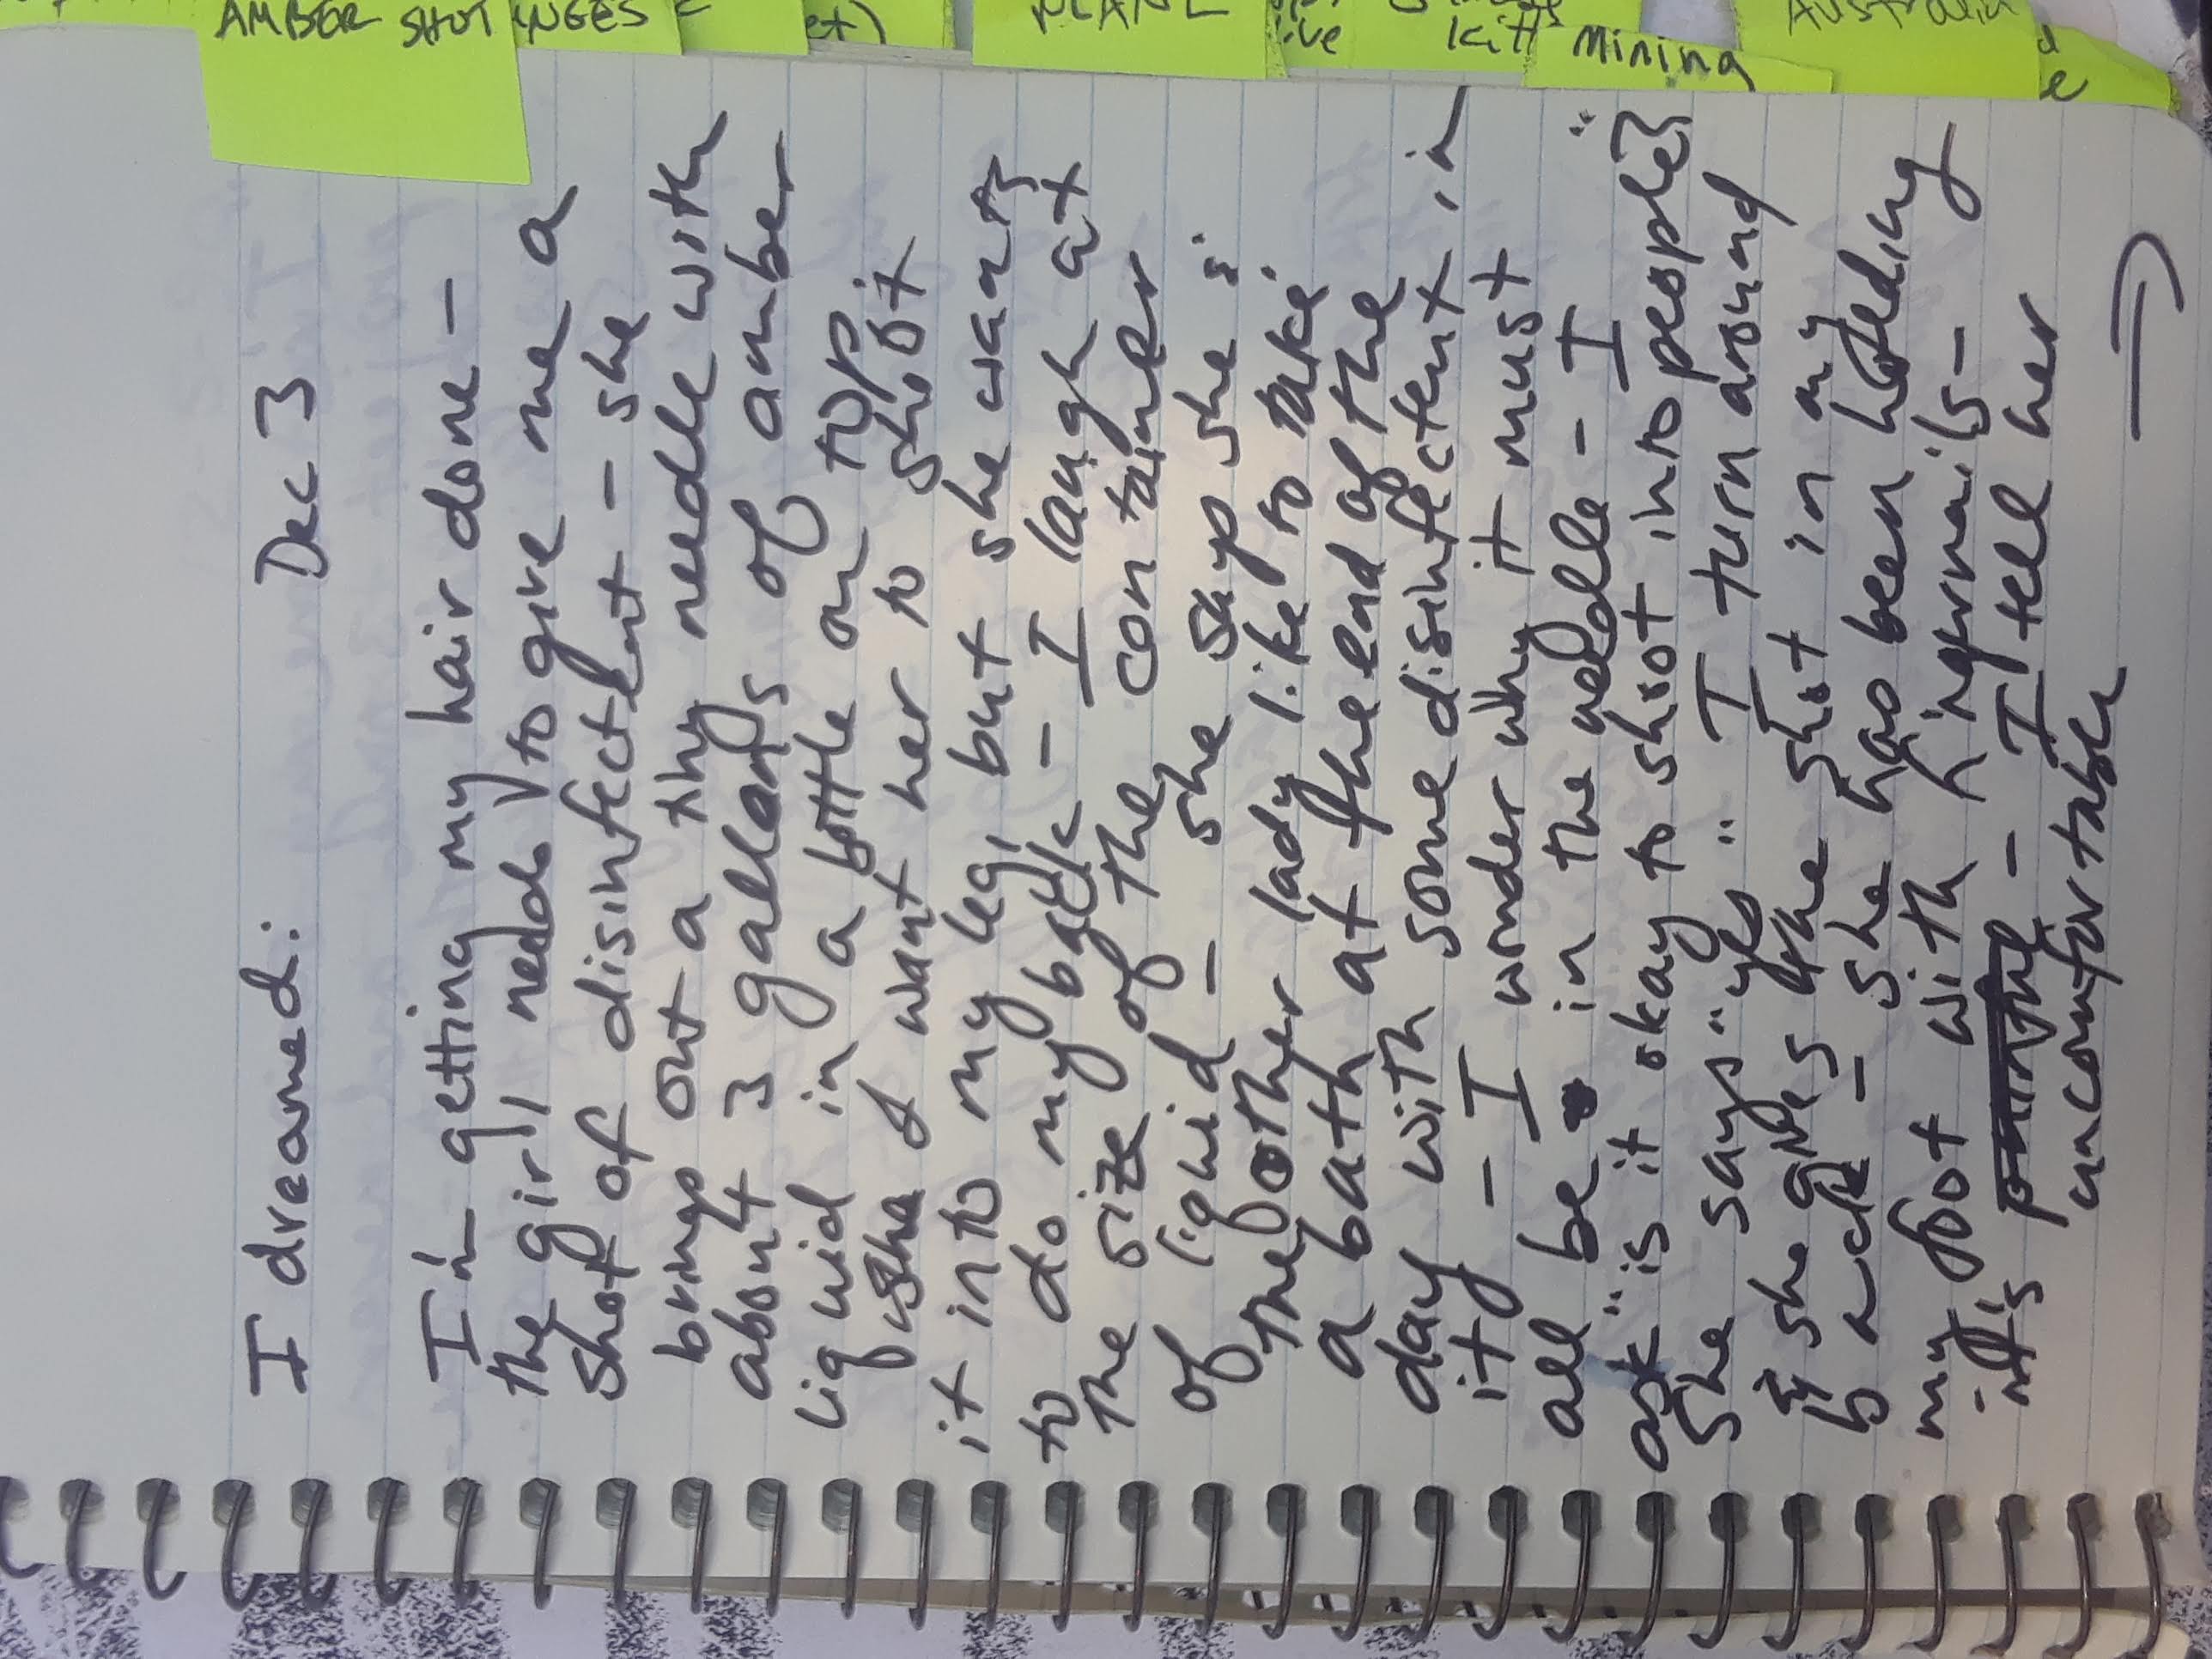 AMBER SHOT
NGES
et)
ive
kitt
Mining
Australia
I dreamed: Dec 3
I'm getting my hair done -
the girl needs to give me a
shot of disinfectent - she
brings out a tiny needle with
about 3 gallons of amber
liquid in a bottle on top
I want her to shoot
it into my leg, but she wants
to do my back - I laugh at
the size of the container
of liquid - she says she &
the other lady like to take
a bath at the end of the
day with some disinfectent in
it - I wonder why it must
all be in the needle - I
ask "is it okay to shoot into people"?
She says "yes" I turn around
& she gives the shot in my
back - she has been holding
my foot with hingernails -
- it's painful - I tell her
uncomfortable